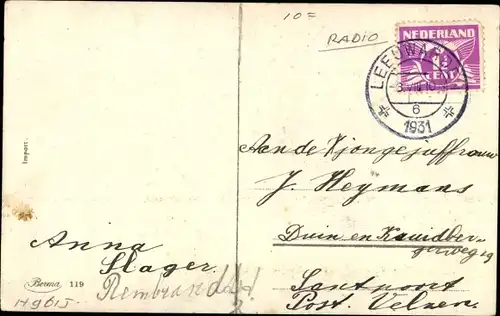 10=
RADIO
NEDERLAND
1½
CENT
LEEUWARDEN
VIII 10
6
1931
Import.
Aan de Kjongejuffrouw
J. Heymans
Duin en Kruidber-
gerweg 29
Santpoort
Post. Velzen.
Anna
Slager.
Berma 119
H9615